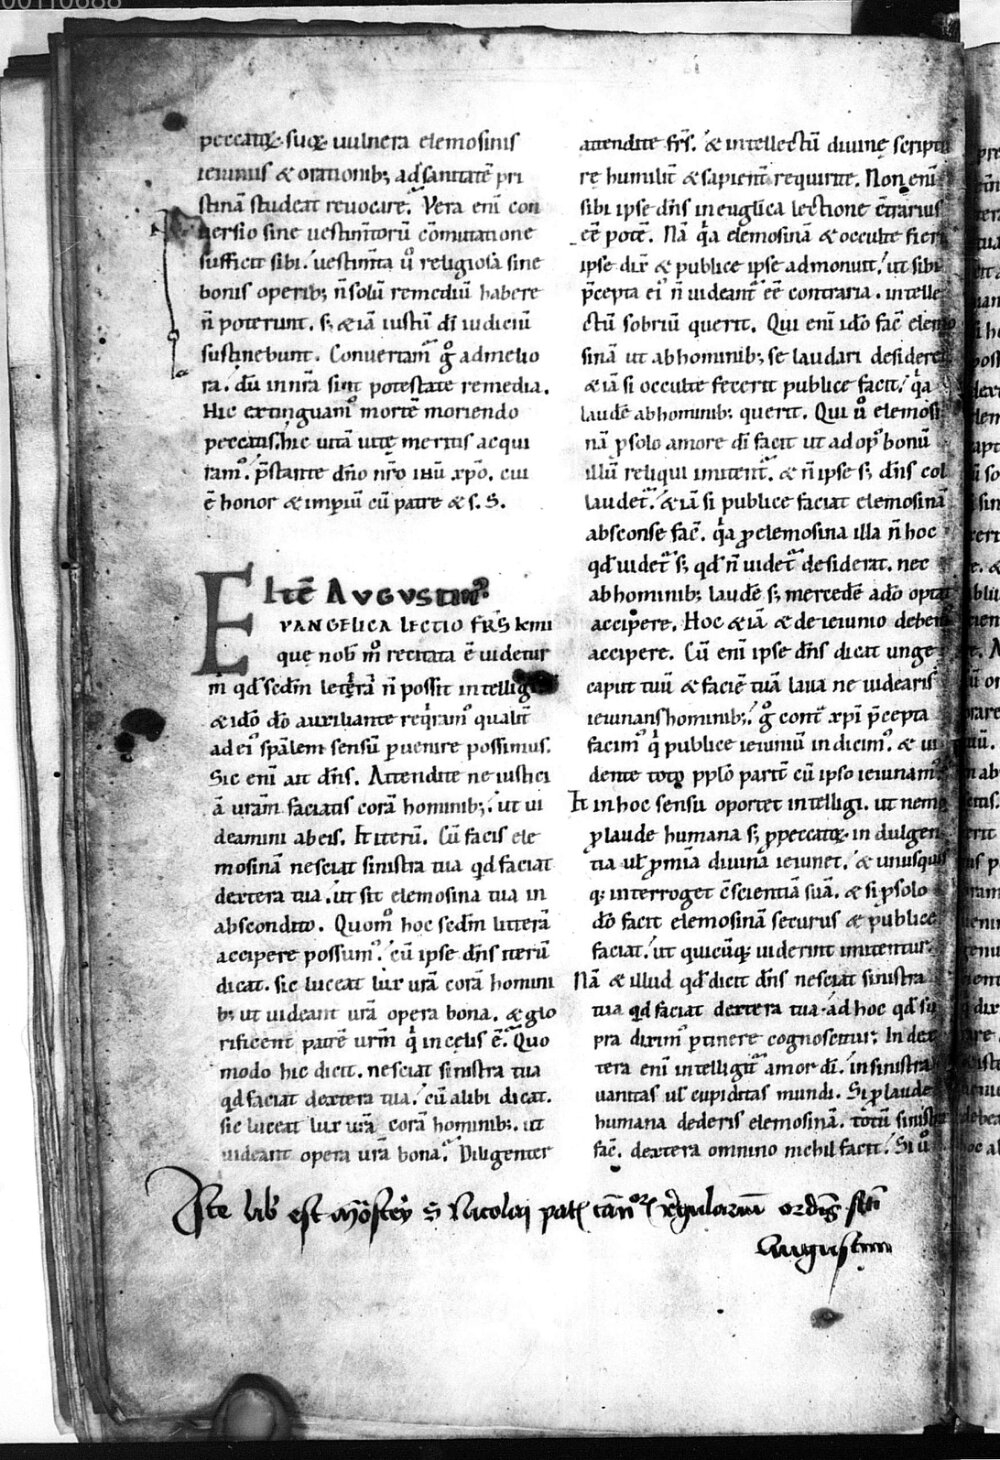 peccatoꝝ suoꝝ uulnera elemosinis
ieiuniis & orationib; ad sanitatē pri
stinā studeat reuocare. Vera enī con
uersio sine uestimtorū cōmutatione
sufficit sibi. uestimta ū religiosa sine
bonis operib; n̄ solū remediū habere
n̄ poterunt. s; & iā iustū dī iudiciū
sustinebunt. Conuertam̄ g̊ ad melio
ra. dū in nrā sunt potestate remedia.
Hic extinguam᷒ morte moriendo
peccatis. hic uitā uite meritis acqui
ram᷒. p̄stante dn̄o nr̄o ihū xp̄o. cui
ē honor & imꝑiū cū patre & s. S.
Itē Augustin᷒
EVANGELICA LECTIO FRS̄ kmi
que nob̄ m̊ recitata ē uidetur
m̄ qd̄ sedm̄ letterā n̄ possit intelligi
& idō dō auxiliante reqͥram᷒ qualit̄
ad ei᷒ spālem sensū ꝑuenire possimus.
Sic enī ait dn̄s. Attendite ne iustici
ā uram̄ faciatis corā hominib;. ut ui
deamini ab eis. Et iterū. Cū facis ele
mosinā nesciat sinistra tua qd̄ faciat
dextera tua. ut sit elemosina tua in
abscondito. Quom̊ hoc sedm̄ litterā
accipere possum᷒. cū ipse dn̄s iterū
dicat. sic luceat lux urā corā homini
b; ut uideant urā opera bona. & glo
rificent patrē urm̄ qͥ in celis ē. Quo
modo hic dicit. nesciat sinistra tua
qd̄ faciat dextera tua. cū alibi dicat.
sic luceat lux urā corā hominib;. ut
uideant opera urā bona. Diligenter
attendite frs̄. & intellectū diuine scriptu
rę humilit̄ & sapient̄ requirite. Non enī
sibi ipse dn̄s in euglica lectione c̄trarius
eē pote. Nā qͣa elemosinā & occulte fieri
ipse dix̄ & publice ipse admonuit. ut sibi
p̄cepta ei᷒ n̄ uideant̄ eē contraria. intelle
ctū sobriū querit. Qui enī idō fac̄ elemo
sinā ut ab hominib; se laudari desideret
& iā si occulte fecerit publice facit. qͣa
laudē ab hominib; querit. Qui ū elemosi
nā ꝓ solo amore dī facit ut ad op᷒ bonū
illū reliqui imitent̄. & n̄ ipse s; dn̄s col
laudet̄. & iā si publice faciat elemosinā
absconse fac̄. qͣa ꝓ elemosina illa n̄ hoc
qd̄ uidet̄ s; qd̄ n̄ uidet̄ desiderat. nec
ab hominib; laudē s; mercedē a dō optat
accipere. Hoc & iā & de ieiunio debem᷒
accipere. Cū enī ipse dn̄s dicat unge
caput tuū & faciē tuā laua ne uidearis
ieiunans hominib;. g̊ cont̄ xpi p̄cepta
facim᷒ qͥ publice ieiuniū indicim᷒. & ui
dente toto pplō paritē cū ipso ieiunam᷒.
Et in hoc sensu oportet intelligi. ut nemo
ꝓ laude humana s; ꝓ peccatoꝝ indulgen
tia ut ꝓmia diuina ieiunet. & unusquis
q; interroget c̄scientiā suā. & si ꝓ solo
dō facit elemosinā securus & publice
faciat. ut quicūq; uiderint imitentur.
Nā & illud qd̄ dicit dn̄s nesciat sinistra
tua qd̄ faciat dextera tua. ad hoc qd̄ su
pra dixim᷒ ꝑtinere cognoscitur. In dex
tera enī intelligit̄ amor dī. in sinistra
uanitas ul̄ cupiditas mundi. Si ꝓ laude
humana dederis elemosinā. totū sinistra
fac̄. dextera omnino nichil facit. Si ū
Iste lib̄ est Mōstery S Nicolaj pat̄ cān̊ꝝ regulariū ordīs sct̄i
Augustini